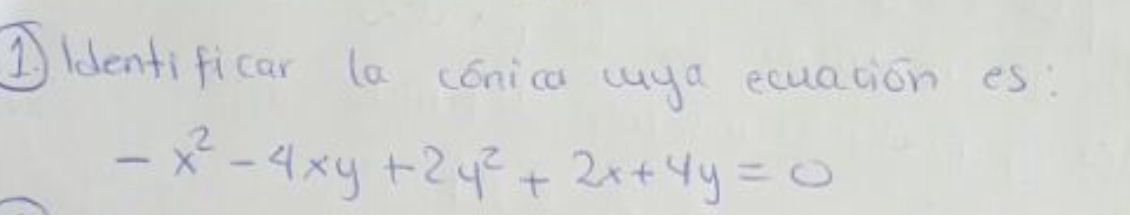 1. Identificar la cónica cuya ecuación es:
- x² - 4xy + 2y² + 2x + 4y = 0